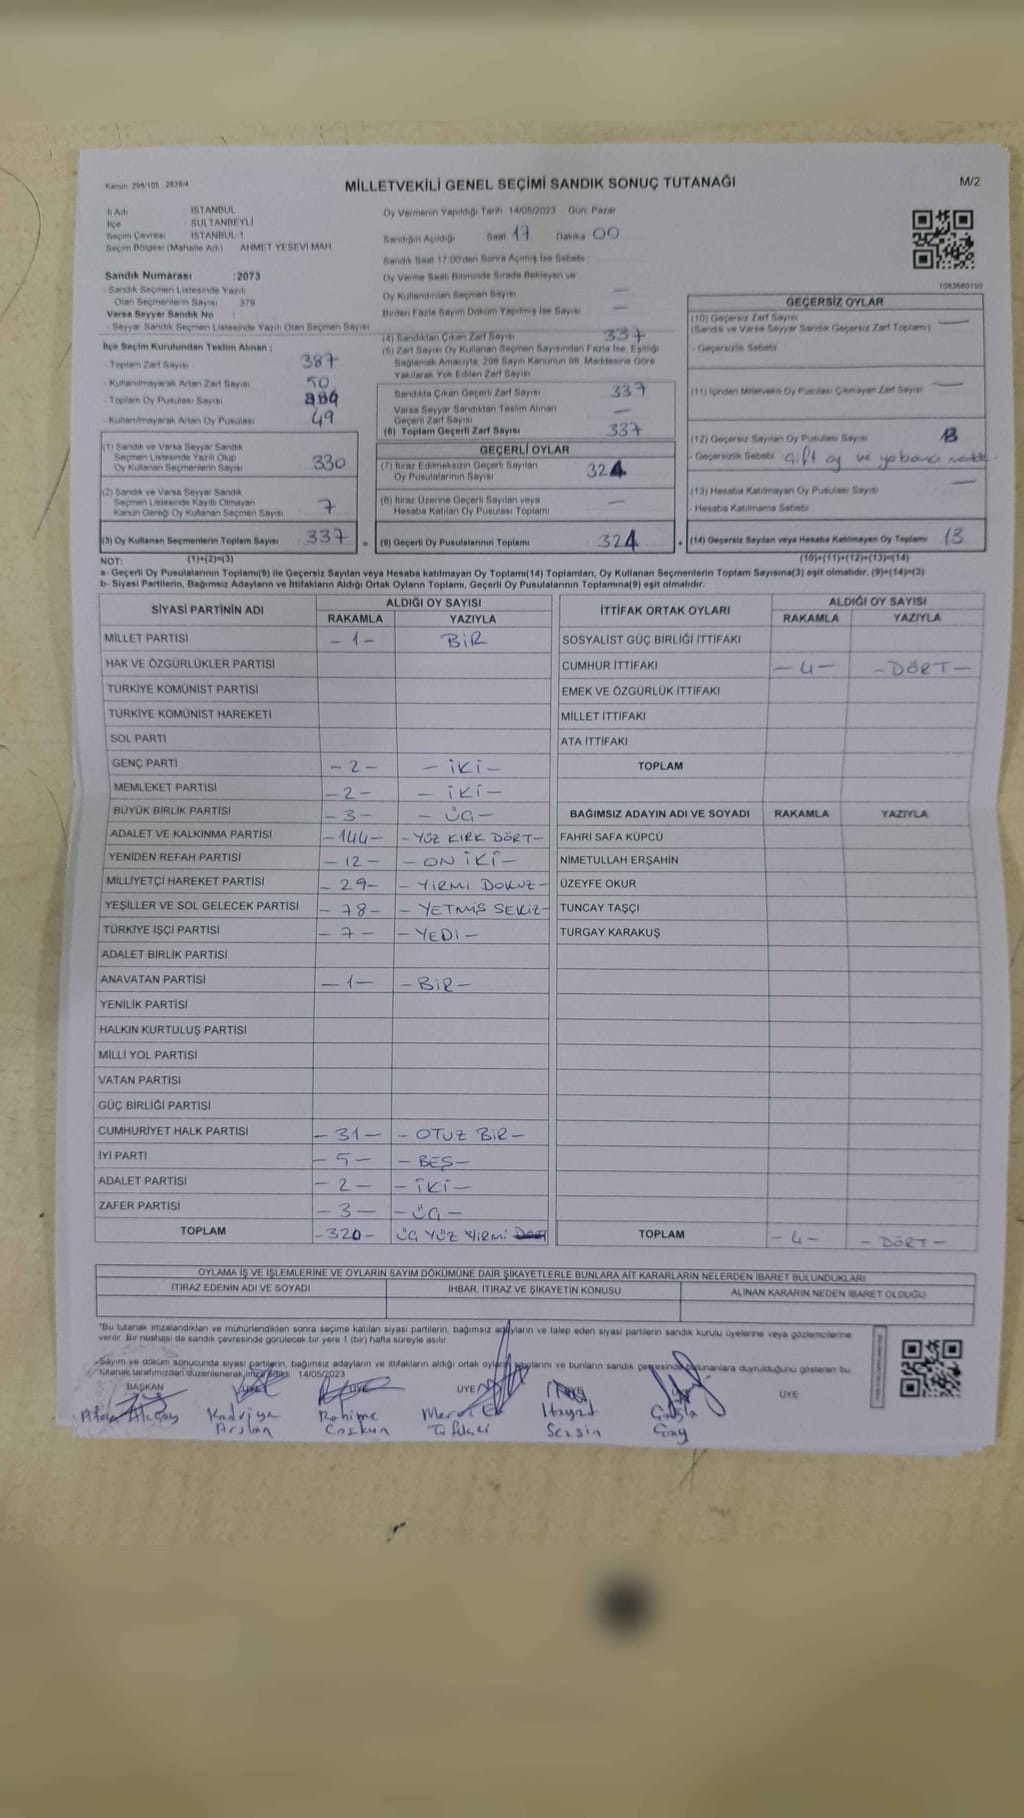 Kanun: 298/105 ; 2839/4
MİLLETVEKİLİ GENEL SEÇİMİ SANDIK SONUÇ TUTANAĞI
M/2
İl Adı İSTANBUL
İlçe SULTANBEYLİ
Seçim Çevresi İSTANBUL-1
Seçim Bölgesi (Mahalle Adı) AHMET YESEVİ MAH
Sandık Numarası :2073
- Sandık Seçmen Listesinde Yazılı
Olan Seçmenlerin Sayısı 379
Varsa Seyyar Sandık No :
- Seyyar Sandık Seçmen Listesinde Yazılı Olan Seçmen Sayısı
İlçe Seçim Kurulundan Teslim Alınan ;
- Toplam Zarf Sayısı 387
- Kullanılmayarak Artan Zarf Sayısı 50
- Toplam Oy Pusulası Sayısı
- Kullanılmayarak Artan Oy Pusulası 49
(1) Sandık ve Varsa Seyyar Sandık
Seçmen Listesinde Yazılı Olup
Oy Kullanan Seçmenlerin Sayısı 330
(2) Sandık ve Varsa Seyyar Sandık
Seçmen Listesinde Kayıtlı Olmayan
Kanun Gereği Oy Kullanan Seçmen Sayısı 7
(3) Oy Kullanan Seçmenlerin Toplam Sayısı 337 =
Oy Vermenin Yapıldığı Tarih 14/05/2023 Gün: Pazar
Sandığın Açıldığı Saat 17 Dakika 00
Sandık Saat 17:00'den Sonra Açılmış İse Sebebi
Oy Verme Saati Bitiminde Sırada Bekleyen ve
Oy Kullandırılan Seçmen Sayısı —
Birden Fazla Sayım Döküm Yapılmış İse Sayısı —
(4) Sandıktan Çıkan Zarf Sayısı 337
(5) Zarf Sayısı Oy Kullanan Seçmen Sayısından Fazla İse, Eşitliği
Sağlamak Amacıyla, 298 Sayılı Kanunun 98. Maddesine Göre
Yakılarak Yok Edilen Zarf Sayısı
Sandıkta Çıkan Geçerli Zarf Sayısı 337
Varsa Seyyar Sandıktan Teslim Alınan
Geçerli Zarf Sayısı —
(6) Toplam Geçerli Zarf Sayısı 337
GEÇERLİ OYLAR
(7) İtiraz Edilmeksizin Geçerli Sayılan
Oy Pusulalarının Sayısı 324
(8) İtiraz Üzerine Geçerli Sayılan veya
Hesaba Katılan Oy Pusulası Toplamı —
(9) Geçerli Oy Pusulalarının Toplamı 324 +
1083680150
GEÇERSİZ OYLAR
(10) Geçersiz Zarf Sayısı —
(Sandık ve Varsa Seyyar Sandık Geçersiz Zarf Toplamı)
- Geçersizlik Sebebi
(11) İçinden Milletvekili Oy Pusulası Çıkmayan Zarf Sayısı —
(12) Geçersiz Sayılan Oy Pusulası Sayısı 13
- Geçersizlik Sebebi Çift oy ve yabancı
(13) Hesaba Katılmayan Oy Pusulası Sayısı —
- Hesaba Katılmama Sebebi
(14) Geçersiz Sayılan veya Hesaba Katılmayan Oy Toplamı 13
NOT: (1)+(2)=(3) (10)+(11)+(12)+(13)=(14)
a- Geçerli Oy Pusulalarının Toplamı(9) ile Geçersiz Sayılan veya Hesaba katılmayan Oy Toplamı(14) Toplamları, Oy Kullanan Seçmenlerin Toplam Sayısına(3) eşit olmalıdır. (9)+(14)=(3)
b- Siyasi Partilerin, Bağımsız Adayların ve İttifakların Aldığı Oyların Toplamı, Geçerli Oy Pusulalarının Toplamına(9) eşit olmalıdır.
SİYASİ PARTİNİN ADI ALDIĞI OY SAYISI
RAKAMLA YAZIYLA
MİLLET PARTİSİ -1- BİR
HAK VE ÖZGÜRLÜKLER PARTİSİ
TÜRKİYE KOMÜNİST PARTİSİ
TÜRKİYE KOMÜNİST HAREKETİ
SOL PARTİ
GENÇ PARTİ -2- -İKİ-
MEMLEKET PARTİSİ -2- -İKİ-
BÜYÜK BİRLİK PARTİSİ -3- -ÜÇ-
ADALET VE KALKINMA PARTİSİ -144- -YÜZ KIRK DÖRT-
YENİDEN REFAH PARTİSİ -12- -ON İKİ-
MİLLİYETÇİ HAREKET PARTİSİ -29- -YİRMİ DOKUZ-
YEŞİLLER VE SOL GELECEK PARTİSİ -78- -YETMİŞ SEKİZ-
TÜRKİYE İŞÇİ PARTİSİ -7- -YEDİ-
ADALET BİRLİK PARTİSİ
ANAVATAN PARTİSİ -1- -BİR-
YENİLİK PARTİSİ
HALKIN KURTULUŞ PARTİSİ
MİLLİ YOL PARTİSİ
VATAN PARTİSİ
GÜÇ BİRLİĞİ PARTİSİ
CUMHURİYET HALK PARTİSİ -31- -OTUZ BİR-
İYİ PARTİ -5- -BEŞ-
ADALET PARTİSİ -2- -İKİ-
ZAFER PARTİSİ -3- -ÜÇ-
TOPLAM -320- ÜÇ YÜZ YİRMİ
İTTİFAK ORTAK OYLARI ALDIĞI OY SAYISI
RAKAMLA YAZIYLA
SOSYALİST GÜÇ BİRLİĞİ İTTİFAKI
CUMHUR İTTİFAKI -4- -DÖRT-
EMEK VE ÖZGÜRLÜK İTTİFAKI
MİLLET İTTİFAKI
ATA İTTİFAKI
TOPLAM
BAĞIMSIZ ADAYIN ADI VE SOYADI RAKAMLA YAZIYLA
FAHRİ SAFA KÜPCÜ
NİMETULLAH ERŞAHİN
ÜZEYFE OKUR
TUNCAY TAŞÇI
TURGAY KARAKUŞ
TOPLAM -4- -DÖRT-
OYLAMA İŞ VE İŞLEMLERİNE VE OYLARIN SAYIM DÖKÜMÜNE DAİR ŞİKAYETLERLE BUNLARA AİT KARARLARIN NELERDEN İBARET BULUNDUKLARI
İTİRAZ EDENİN ADI VE SOYADI İHBAR, İTİRAZ VE ŞİKAYETİN KONUSU ALINAN KARARIN NEDEN İBARET OLDUĞU
*Bu tutanak imzalandıktan ve mühürlendikten sonra seçime katılan siyasi partilerin, bağımsız adayların ve talep eden siyasi partilerin sandık kurulu üyelerine veya gözlemcilerine
verilir. Bir nüshası da sandık çevresinde görülecek bir yere 1 (bir) hafta süreyle asılır.
-Sayım ve döküm sonucunda siyasi partilerin, bağımsız adayların ve ittifakların aldığı ortak oyların sayılarını ve bunların sandık çevresinde bulunanlara duyrulduğunu gösteren bu
tutanak tarafımızdan düzenlenerek imza edildi. 14/05/2023
BAŞKAN ÜYE ÜYE
Kadriye Rahime Hayat
Arslan Coşkun